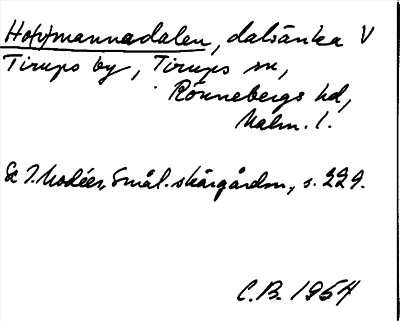 Ho(v)mannadalen, dalsänka V
Tirups by, Tirups sn,
Rönnebergs hd,
Malm. l.
Se I. Modéer, Smål. skärgården, s. 229.
C.B. 1964